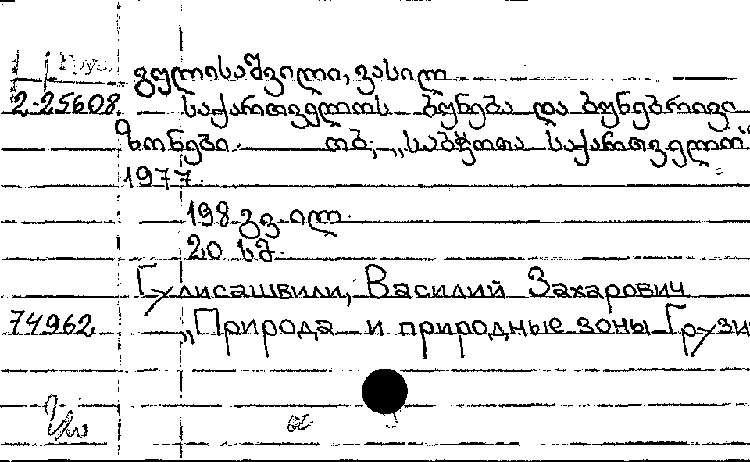 გულისაშვილი, ვასილ
2-25608 საქართველოს ბუნება და ბუნებრივი
ზონები თბ., „საბჭოთა საქართველო"
1977
198 გვ. ილ.
20 სმ.
Гулисашвили, Василий Захарович
74962 „Природа и природные зоны Грузи